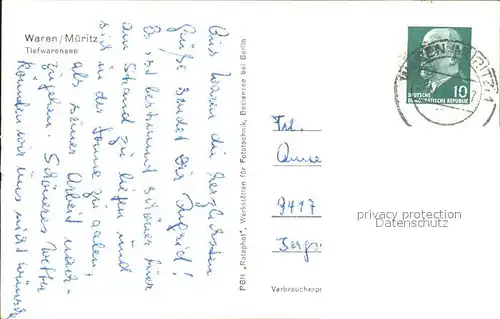 Waren/Müritz
Tiefwarensee
Aus Waren die herzlichsten
Grüße sendet Dir Ingrid!
Es ist bestimmt schöner hier
am Strand zu liegen und
sich in der Sonne zu aalen,
als seiner Arbeit nach-
zugehen. Schöneres Wetter
könnten wir uns nicht wünschen
PGH „Rotophot“, Werkstätten für Fototechnik, Bestensee bei Berlin
WAREN (MÜRITZ) 1
10
DEUTSCHE
DEMOKRATISCHE REPUBLIK
Frl.
9417
privacy protection
Datenschutz
Verbraucherpr